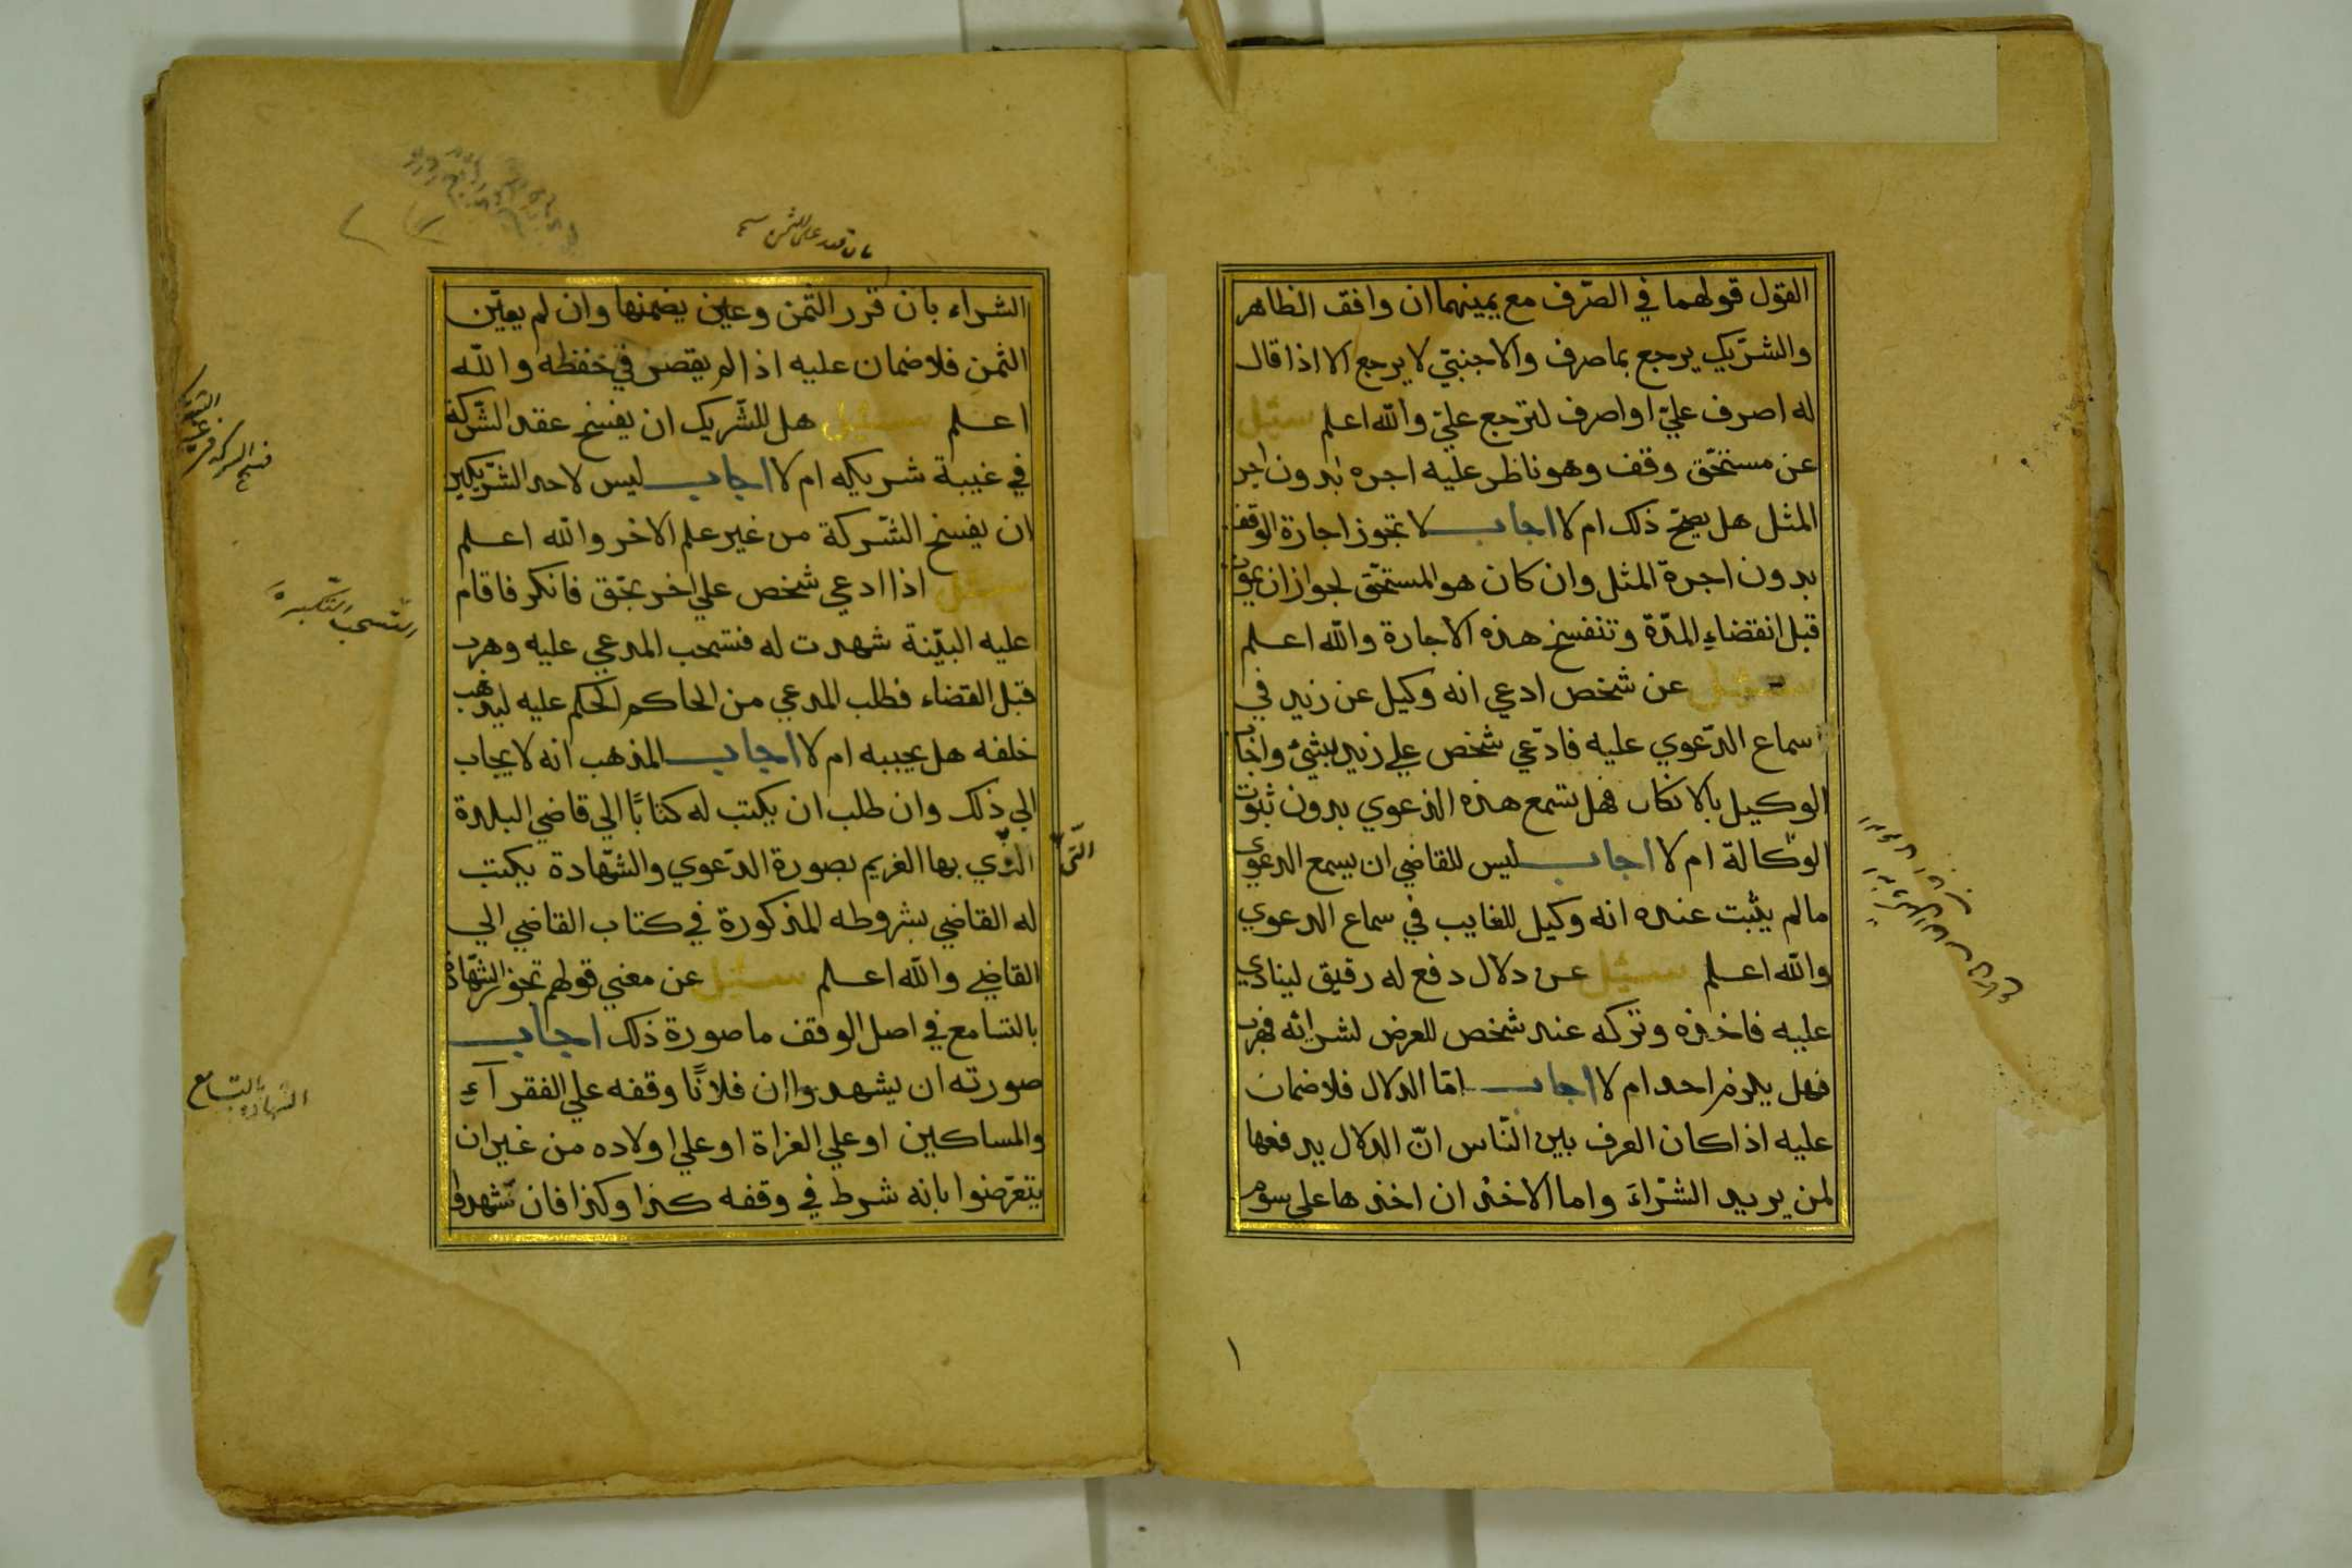 القول قولهما في الصّرف مع يمينهما ان وافق الظاهر
والشرّيك يرجع بما صرف والاجنبيّ لا يرجع الا اذا قال
له اصرف عليّ او اصرف لترجع عليّ والله اعلم سئل
عن مستحّق وقف وهو ناظر عليه اجره بدون اجر
المثل هل يصحّ ذلك ام لا اجاب لا تجوز اجارة الوقف
بدون اجرة المثل وان كان هو المستحّق لجواز ان يموت
قبل انقضاء المدّة وتنفسخ هذه الاجارة والله اعلم
سئل عن شخص ادعي انه وكيل عن زيد في
سماع الدّعوي عليه فادّعي شخص علي زيد بشئ واجاب
الوكيل بالانكار فهل تسمع هذه الدعوي بدون ثبوت
الوكالة ام لا اجاب ليس للقاضي ان يسمع الدعوي
مالم يثبت عنده انه وكيل للغايب في سماع الدعوي
والله اعلم سئل عن دلال دفع له رقيق لينادي
عليه فاخذه وتركه عند شخص للعرض لشرائه فهرب
فهل يلزم احد ام لا اجاب امّا الدلال فلا ضمان
عليه اذا كان العرف بين النّاس انّ الدلال يدفعها
لمن يريد الشّراءَ واما الاخذ ان اخذها علي سوم
١
الشراء بان قرر الثمن وعين يضمنها وان لم يعيّن
الثمن فلا ضمان عليه اذا لم يقصر في حفظه والله
اعلم سئل هل للشّريك ان يفسخ عقد الشّركة
في غيبة شريكه ام لا اجاب ليس لاحد الشّريكين
ان يفسخ الشّركة من غير علم الاخر والله اعلم
سئل اذا ادعي شخص علي اخر بحّق فانكر فاقام
عليه البيّنة شهدت له فتسحب المدعي عليه وهرب
قبل القضاء فطلب المدعي من الحاكم الحكم عليه ليذهب
خلفه هل يجيبه ام لا اجاب المذهب انه لا يجاب
الي ذلك وان طلب ان يكتب له كتابًا الي قاضي البلدة
الّذي بها الغريم بصورة الدّعوي والشّهادة يكتب
التّي
له القاضي بشروطه المذكورة في كتاب القاضي الي
القاضي والله اعلم سئل عن معني قولهم تجوز الشّهادة
بالتسامع في اصل الوقف ما صورة ذلك اجاب
صورته ان يشهدوا ان فلانًا وقفه علي الفقرآءِ
والمساكين او علي الغزاة او علي اولاده من غير ان
يتعرّضوا بانه شرط في وقفه كذا وكذا فان تشهدوا
الشهادة بالتسامع